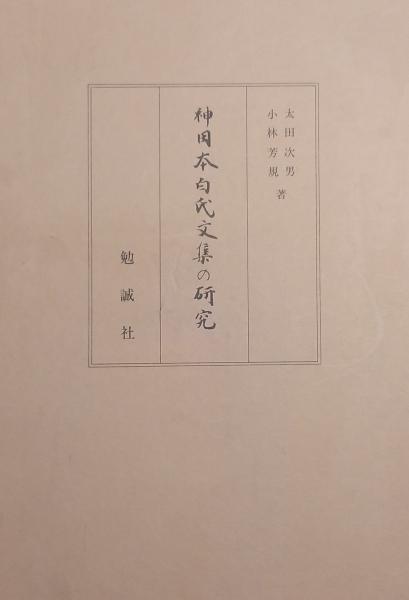 太田次男
小林芳規 著
神田本白氏文集の研究
勉誠社